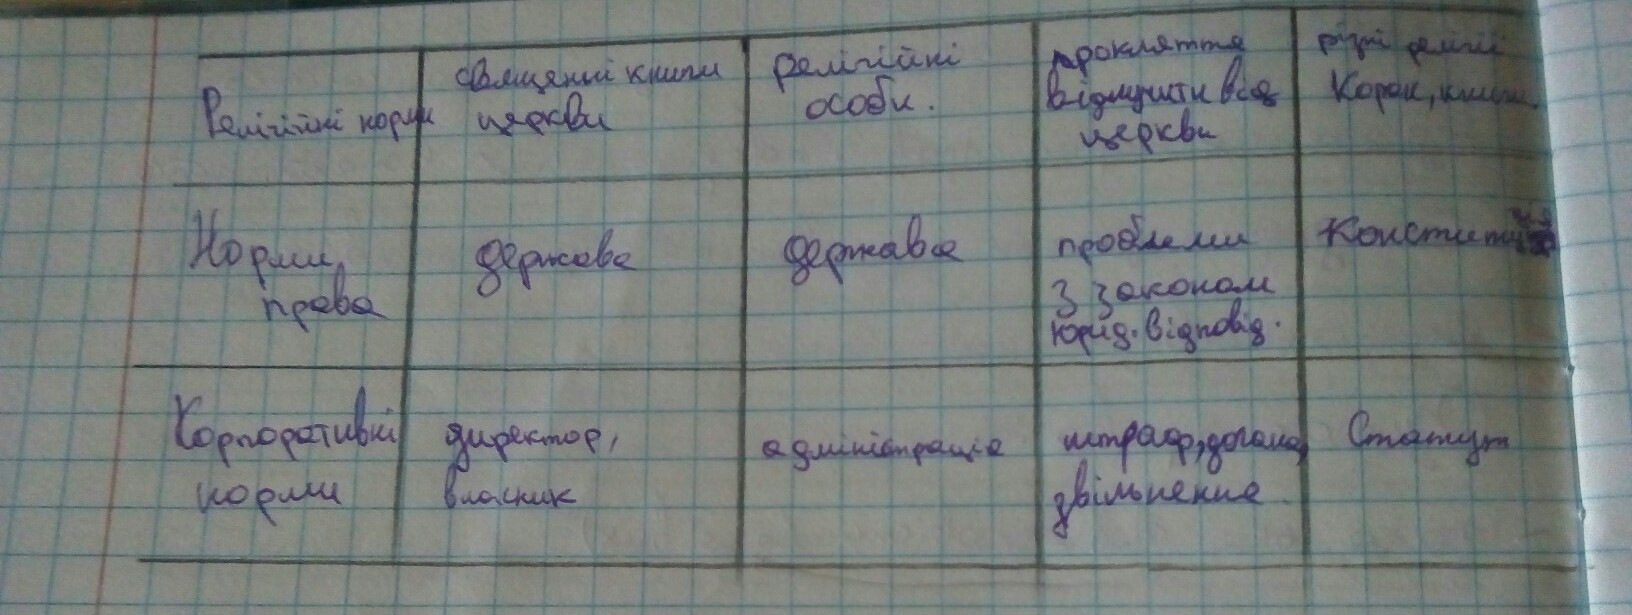 Релігійні норми
священні книги
церкви
релігійні
особи.
прокляття
відлучити від
церкви
різні релігії
Коран, книги
Норми
права
держава
держава
проблеми
з законом
юрид. відповід.
Конституц
Корпоративні
норми
директор,
власник
адміністрація
штраф, догана,
звільнення
Статут